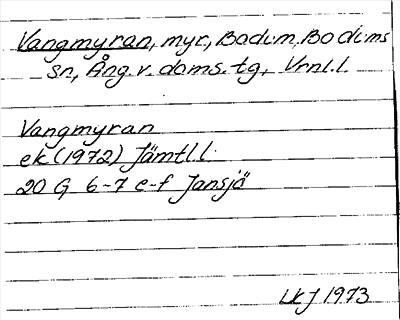 Vangmyran, myr, Bodum, Bodums
sn, Ång.v. doms.tg, Vrnl.l.
Vangmyran
ek (1972) Jämtl.l.
20 G 6-7 e-f Jansjö
LKJ 1973